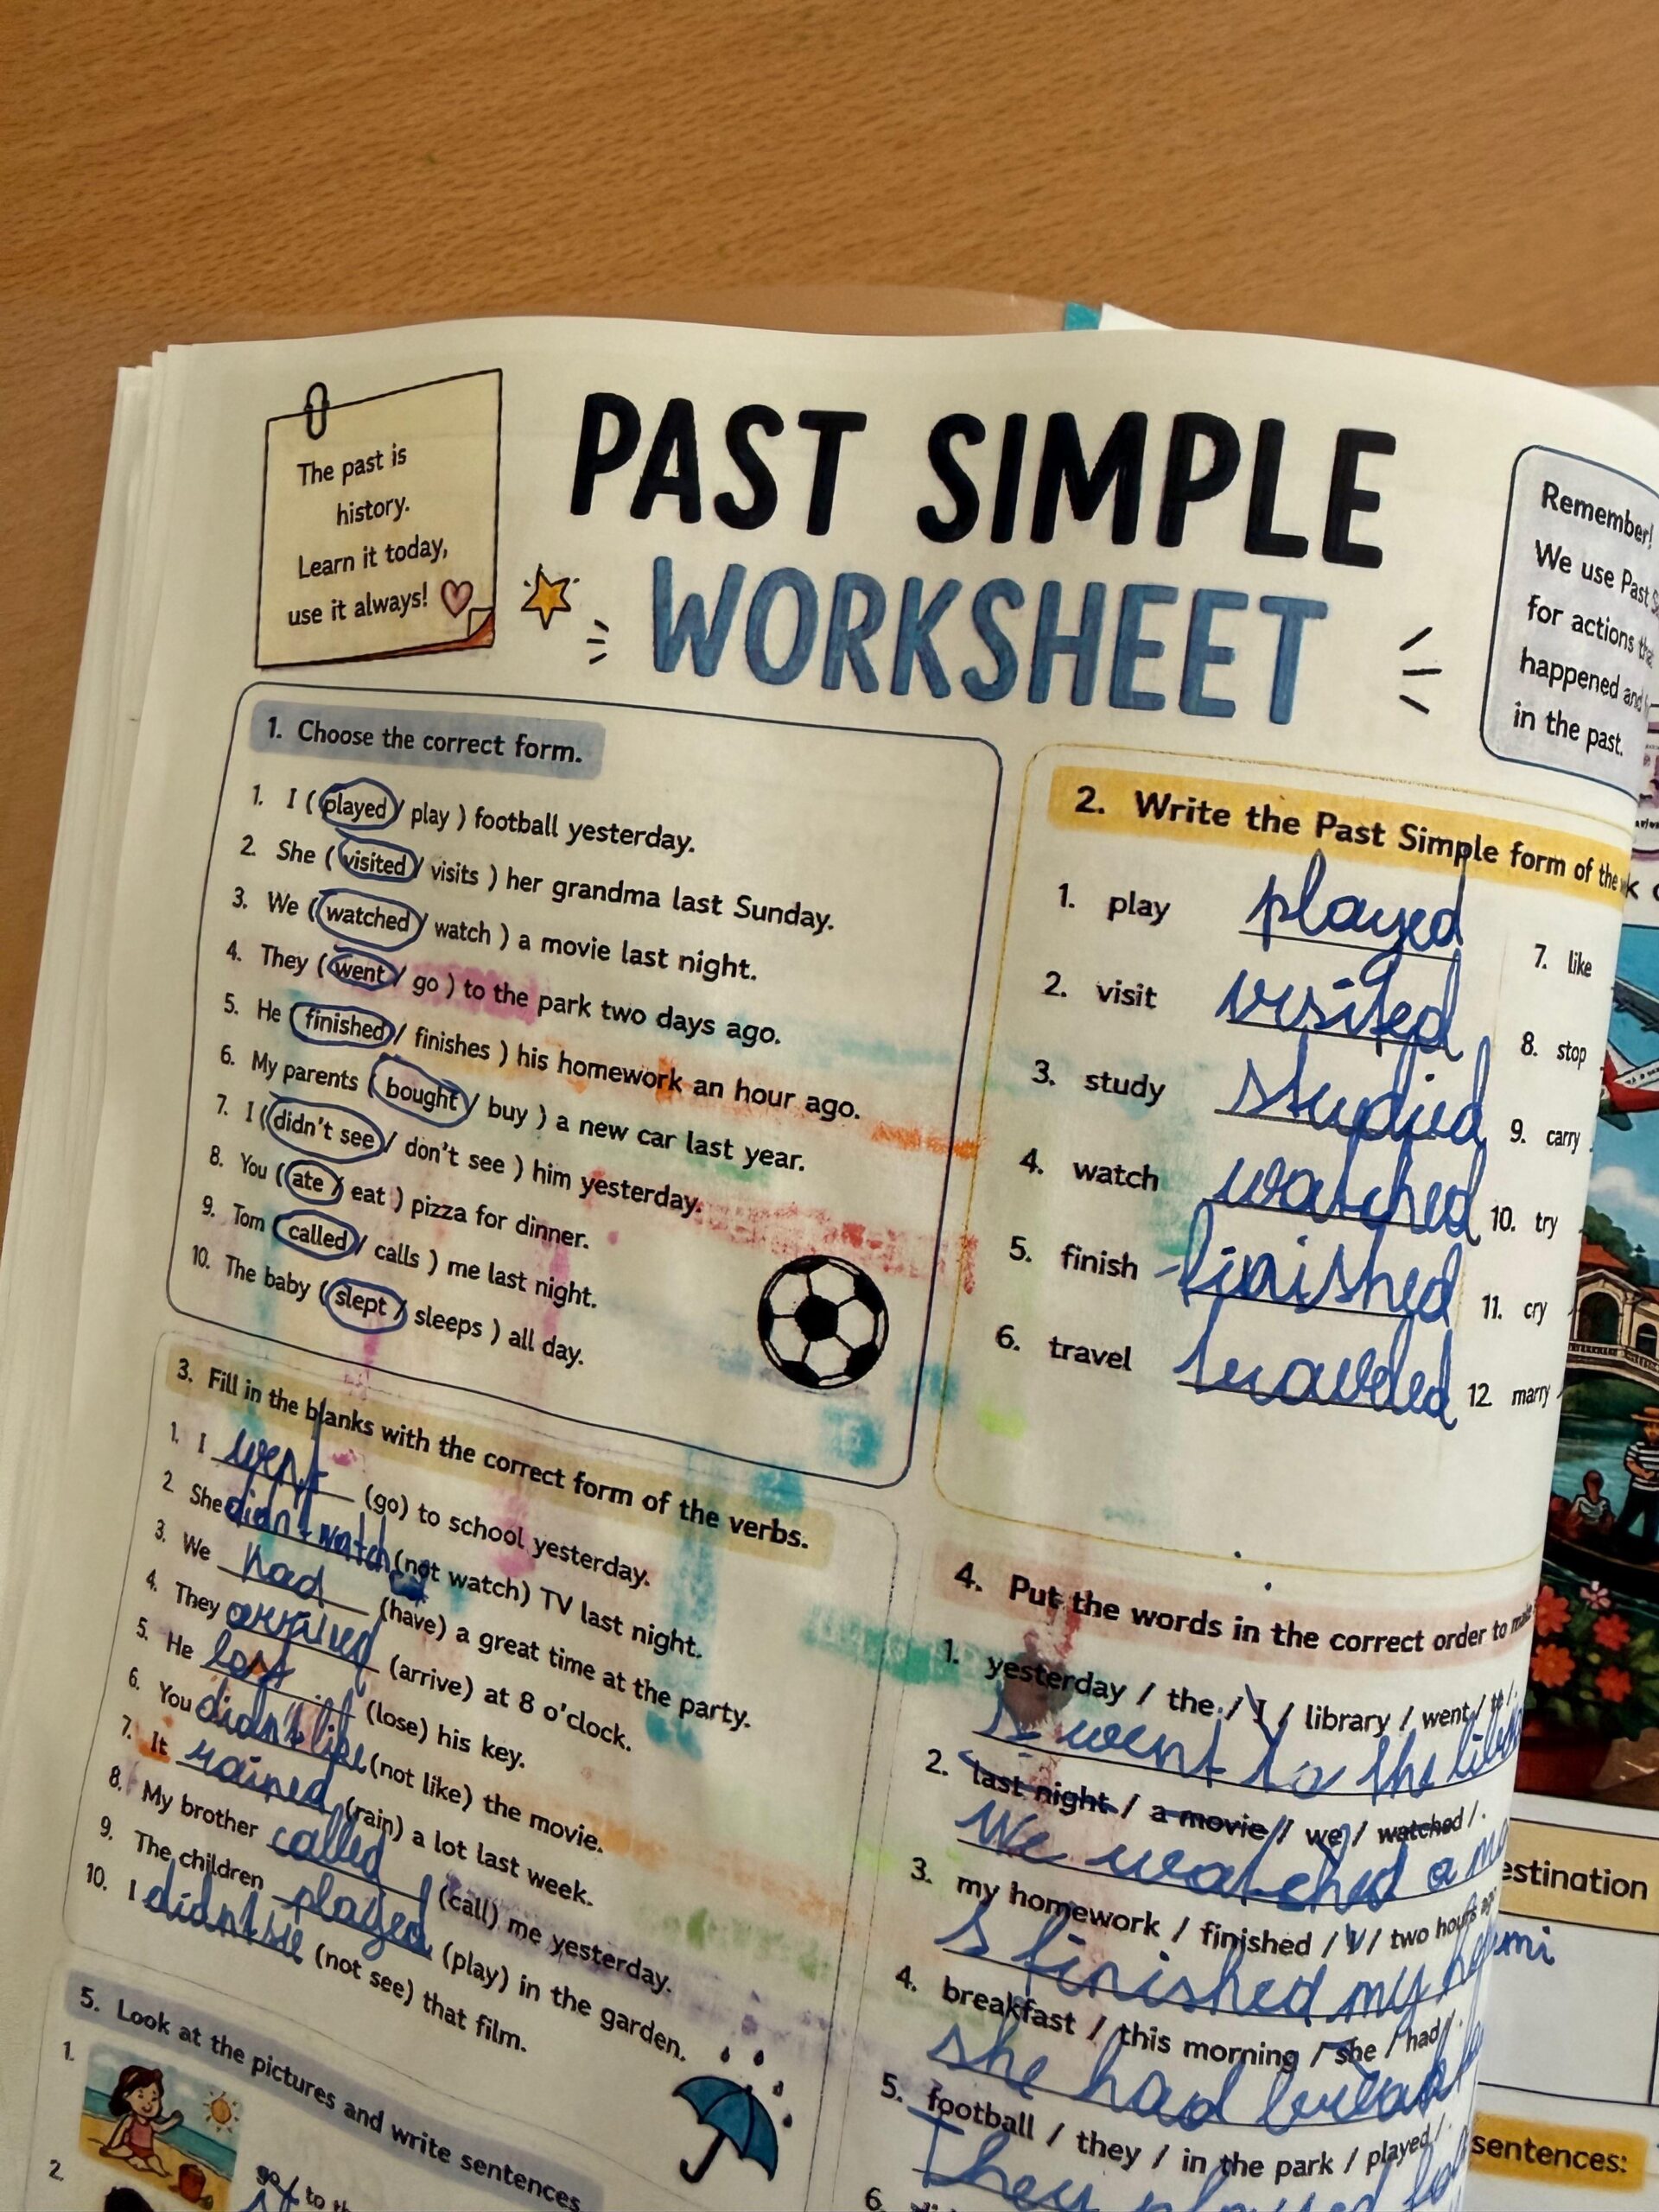 The past is
history.
Learn it today,
use it always!
PAST SIMPLE
WORKSHEET
Remember!
We use Past
for actions
happened and
in the past.
1. Choose the correct form.
1. I ( played / play ) football yesterday.
2. She ( visited / visits ) her grandma last Sunday.
3. We ( watched / watch ) a movie last night.
4. They ( went / go ) to the park two days ago.
5. He ( finished / finishes ) his homework an hour ago.
6. My parents ( bought / buy ) a new car last year.
7. I ( didn't see / don't see ) him yesterday.
8. You ( ate / eat ) pizza for dinner.
9. Tom ( called / calls ) me last night.
10. The baby ( slept / sleeps ) all day.
2. Write the Past Simple form of the
1. play played
2. visit visited
3. study studied
4. watch watched
5. finish finished
6. travel traveled
7. like
8. stop
9. carry
10. try
11. cry
12. marry
3. Fill in the blanks with the correct form of the verbs.
1. I went (go) to school yesterday.
2 She didn't watch (not watch) TV last night.
3. We had (have) a great time at the party.
4. They arrived (arrive) at 8 o'clock.
5. He lost (lose) his key.
6. You didn't like (not like) the movie.
7. It rained (rain) a lot last week.
8. My brother called (call) me yesterday.
9. The children played (play) in the garden.
10. I didn't see (not see) that film.
4. Put the words in the correct order to
1. yesterday / the / I / library / went / to / .
I went to the
2. last night / a movie / we / watched / .
We watched a
3. my homework / finished / I / two hours
I finished my
4. breakfast / this morning / she / had / .
she had
5. football / they / in the park / played / .
They played
6.
5. Look at the pictures and write sentences
1.
go / to
2.
estination
sentences: